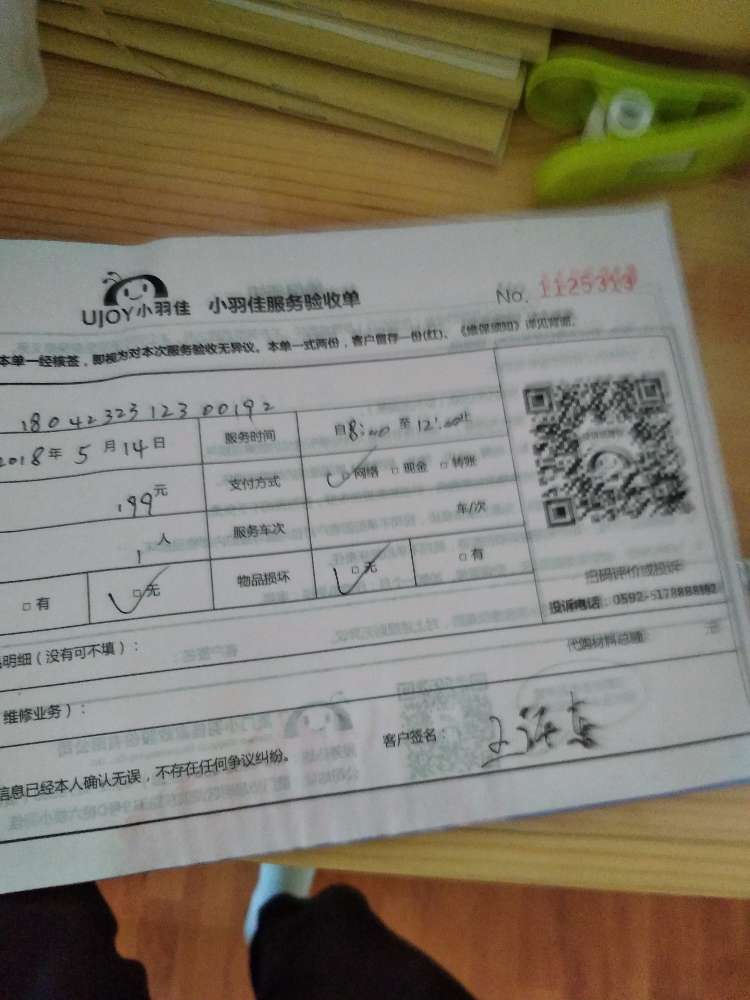 UJOY小羽佳 小羽佳服务验收单 No. 1125313
本单一经核签，即视为对本次服务验收无异议。本单一式两份，客户留存一份(红)、《维保须知》详见背面。
1804232312300192
2018年5月14日 服务时间 自8:00至12:00止
199元 支付方式 网络 现金 转账
1人 服务车次 车/次
有 无 物品损坏 无 有
扫码评价或投诉
明细（没有可不填）： 代购材料总额： 元
维修业务）：
客户签名：
信息已经本人确认无误，不存在任何争议纠纷。